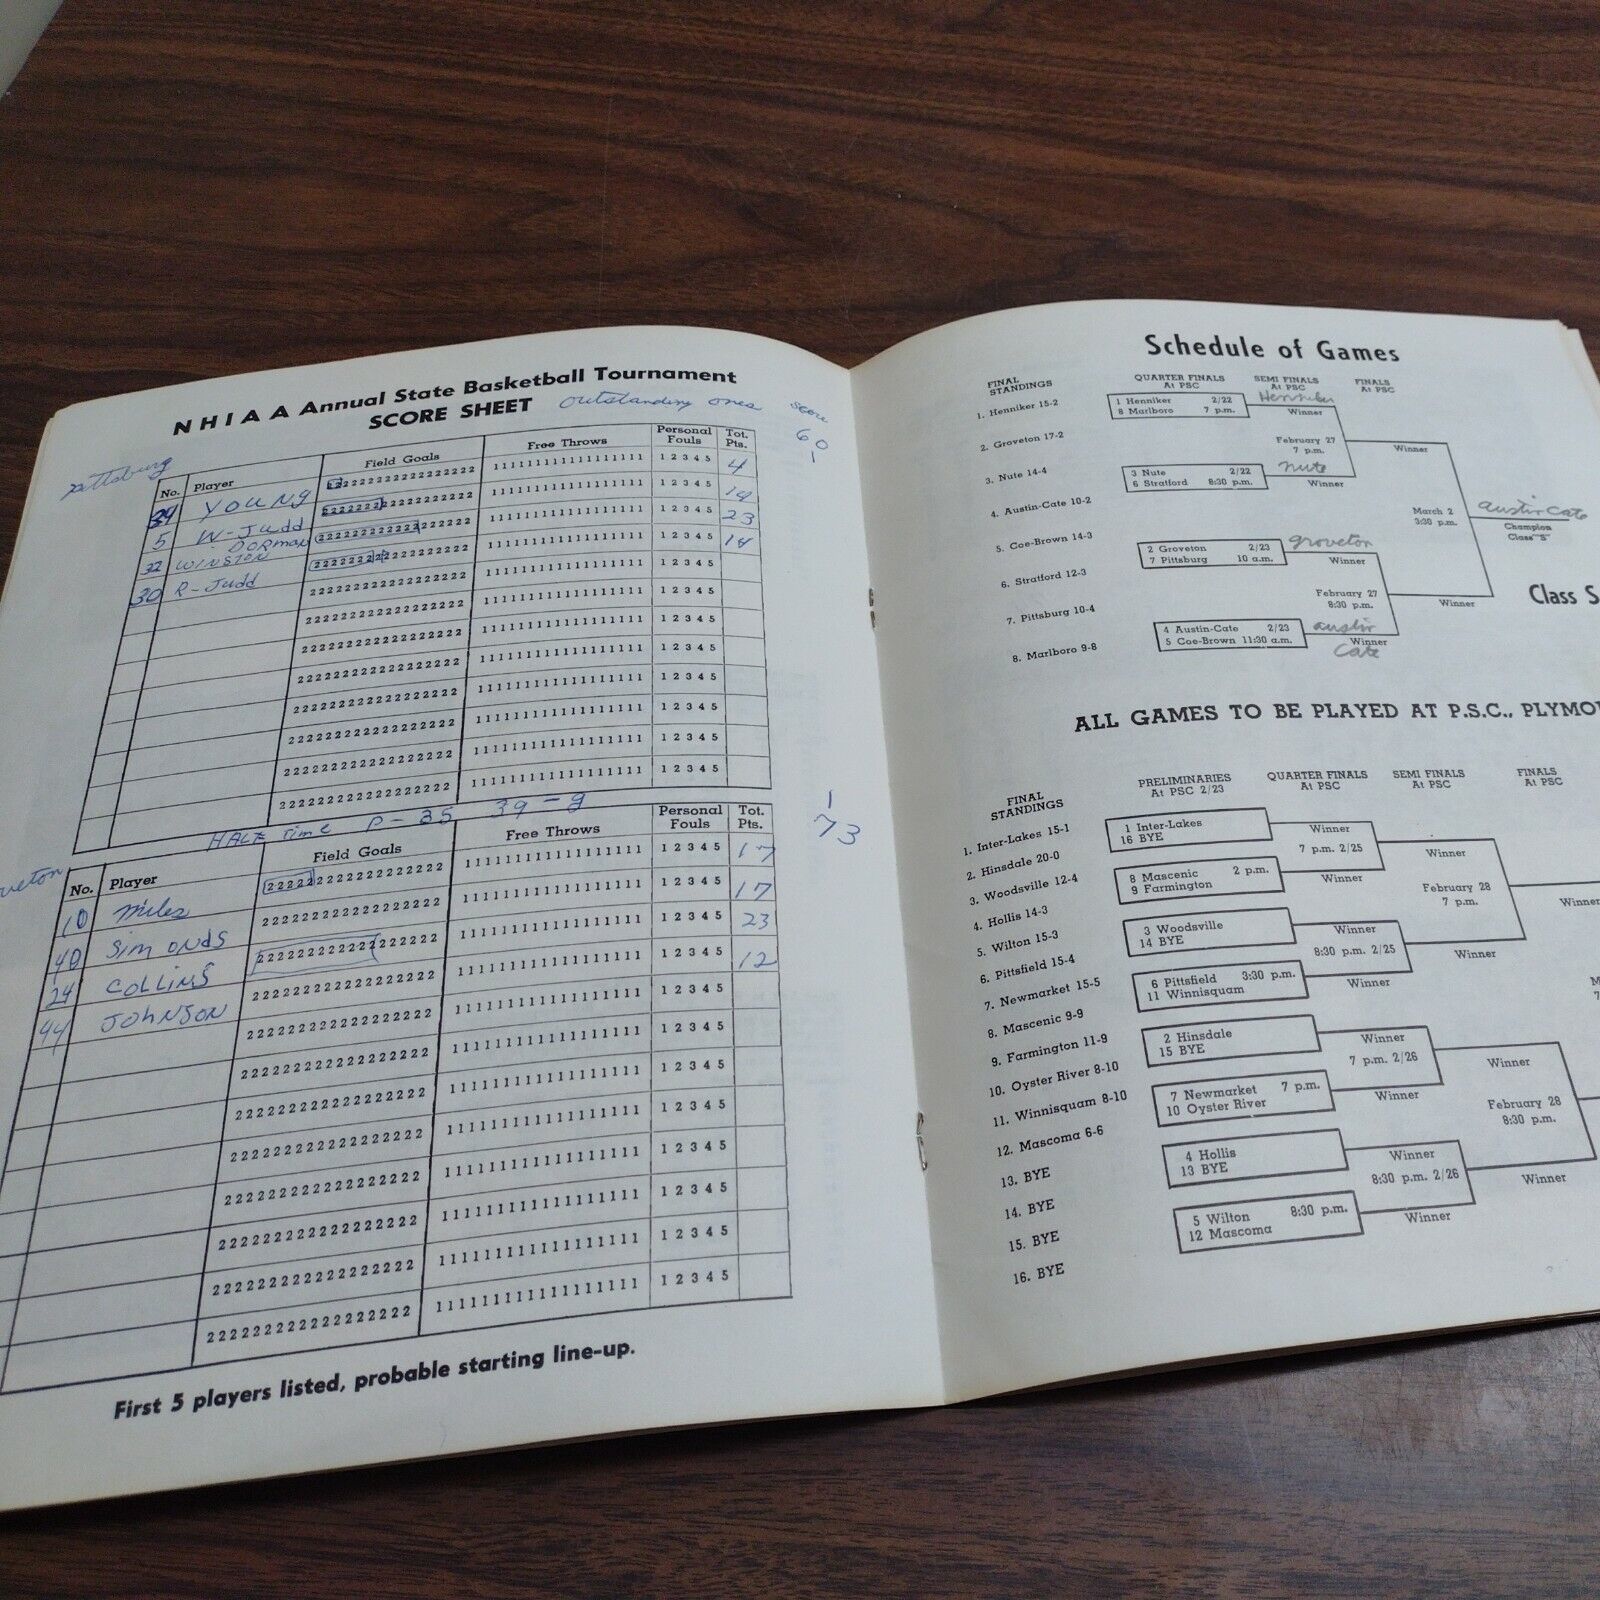 NHIAA Annual State Basketball Tournament
SCORE SHEET outstanding ones score
Pittsburg 60
No. Player Field Goals Free Throws Personal Fouls Tot. Pts.
34 YOUNG 22222222222222222222 1111111111111111111 1 2 3 4 5 4
5 W-Judd 22222222222222222222 1111111111111111111 1 2 3 4 5
32 WINSTON DORMAN 22222222222222222222 1111111111111111111 1 2 3 4 5 23
30 R-Judd 22222222222222222222 1111111111111111111 1 2 3 4 5
22222222222222222222 1111111111111111111 1 2 3 4 5
22222222222222222222 1111111111111111111 1 2 3 4 5
22222222222222222222 1111111111111111111 1 2 3 4 5
22222222222222222222 1111111111111111111 1 2 3 4 5
22222222222222222222 1111111111111111111 1 2 3 4 5
22222222222222222222 1111111111111111111 1 2 3 4 5
22222222222222222222 1111111111111111111 1 2 3 4 5
22222222222222222222 1111111111111111111 1 2 3 4 5
HALF time P-35 39-g
veton 73
No. Player Field Goals Free Throws Personal Fouls Tot. Pts.
10 Miles 22222222222222222222 1111111111111111111 1 2 3 4 5 17
40 Simonds 22222222222222222222 1111111111111111111 1 2 3 4 5 17
24 COLLINS 22222222222222222222 1111111111111111111 1 2 3 4 5 23
44 JOHNSON 22222222222222222222 1111111111111111111 1 2 3 4 5 12
22222222222222222222 1111111111111111111 1 2 3 4 5
22222222222222222222 1111111111111111111 1 2 3 4 5
22222222222222222222 1111111111111111111 1 2 3 4 5
22222222222222222222 1111111111111111111 1 2 3 4 5
22222222222222222222 1111111111111111111 1 2 3 4 5
22222222222222222222 1111111111111111111 1 2 3 4 5
22222222222222222222 1111111111111111111 1 2 3 4 5
22222222222222222222 1111111111111111111 1 2 3 4 5
First 5 players listed, probable starting line-up.
Schedule of Games
FINAL STANDINGS
1. Henniker 15-2
2. Groveton 17-2
3. Nute 14-4
4. Austin-Cate 10-2
5. Coe-Brown 14-3
6. Stratford 12-3
7. Pittsburg 10-4
8. Marlboro 9-8
QUARTER FINALS At PSC
1 Henniker 2/22
8 Marlboro 7 p.m.
3 Nute 2/22
6 Stratford 8:30 p.m.
2 Groveton 2/23
7 Pittsburg 10 a.m.
4 Austin-Cate 2/23
5 Coe-Brown 11:30 a.m.
SEMI FINALS At PSC
Henniker
Winner
February 27
7 p.m.
Nute
Winner
groveton
Winner
February 27
8:30 p.m.
austin
Winner
Cate
FINALS At PSC
Winner
March 2
3:30 p.m.
Winner
austin Cate
Champion
Class "S"
Class S
ALL GAMES TO BE PLAYED AT P.S.C., PLYMO
FINAL STANDINGS
1. Inter-Lakes 15-1
2. Hinsdale 20-0
3. Woodsville 12-4
4. Hollis 14-3
5. Wilton 15-3
6. Pittsfield 15-4
7. Newmarket 15-5
8. Mascenic 9-9
9. Farmington 11-9
10. Oyster River 8-10
11. Winnisquam 8-10
12. Mascoma 6-6
13. BYE
14. BYE
15. BYE
16. BYE
PRELIMINARIES At PSC 2/23
1 Inter-Lakes
16 BYE
8 Mascenic 2 p.m.
9 Farmington
3 Woodsville
14 BYE
6 Pittsfield 3:30 p.m.
11 Winnisquam
2 Hinsdale
15 BYE
7 Newmarket 7 p.m.
10 Oyster River
4 Hollis
13 BYE
5 Wilton 8:30 p.m.
12 Mascoma
QUARTER FINALS At PSC
Winner
7 p.m. 2/25
Winner
Winner
8:30 p.m. 2/25
Winner
Winner
7 p.m. 2/26
Winner
Winner
8:30 p.m. 2/26
Winner
SEMI FINALS At PSC
Winner
February 28
7 p.m.
Winner
Winner
February 28
8:30 p.m.
Winner
FINALS At PSC
Winner